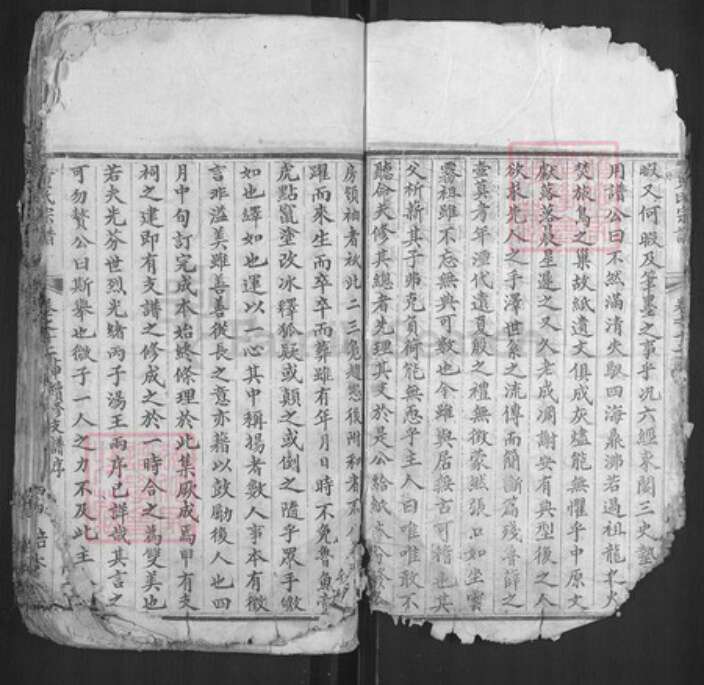 暇又何暇及筆墨之事乎况六經束閣三史墊
用譜公曰不然滿清失馭四海鼎沸若過祖龍之火
焚旅鳥之巢故紙遺文俱成灰燼能無懼乎中原文
獻落落晨星邇之又久老成凋謝安有典型後之人
欲求先人之手澤世系之流傳而簡斷篇殘魯薛之
壺真考年湮代遺夏殷之禮無徵蒙然張口如坐雲
霧祖雖不忘無典可數也令雖與居無古可稽也其
父析薪其子弗克負荷能無恧乎主人曰唯唯敢不
聽命夫修其總者先理其支於是公給紙
房領袖者故此二三
躍而來生而卒卒而葬雖有年月日時不免魯魚亥
虎點竄塗改冰釋狐疑或顛之或倒之隨乎眾手繳
如也繹如也運以一心其中稱揚者數人事本有徵
言非溢美雖善善從長之意亦藉以鼓勵後人也四
月中旬訂完成本始終條理於此集厥成焉甲有支
祠之建即有支譜之修成之於一時合之為雙美也
若夫光芬世烈光緒丙子湯王兩序已詳哉其言之
可勿贅公曰斯舉也微子一人之力不及此主
氏宗譜
續修支譜序